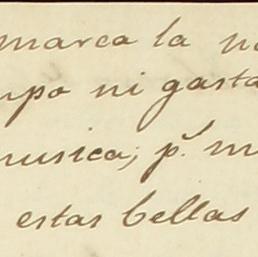 marca la no
mpo ni gasta
musica; p.r m
estas bellas